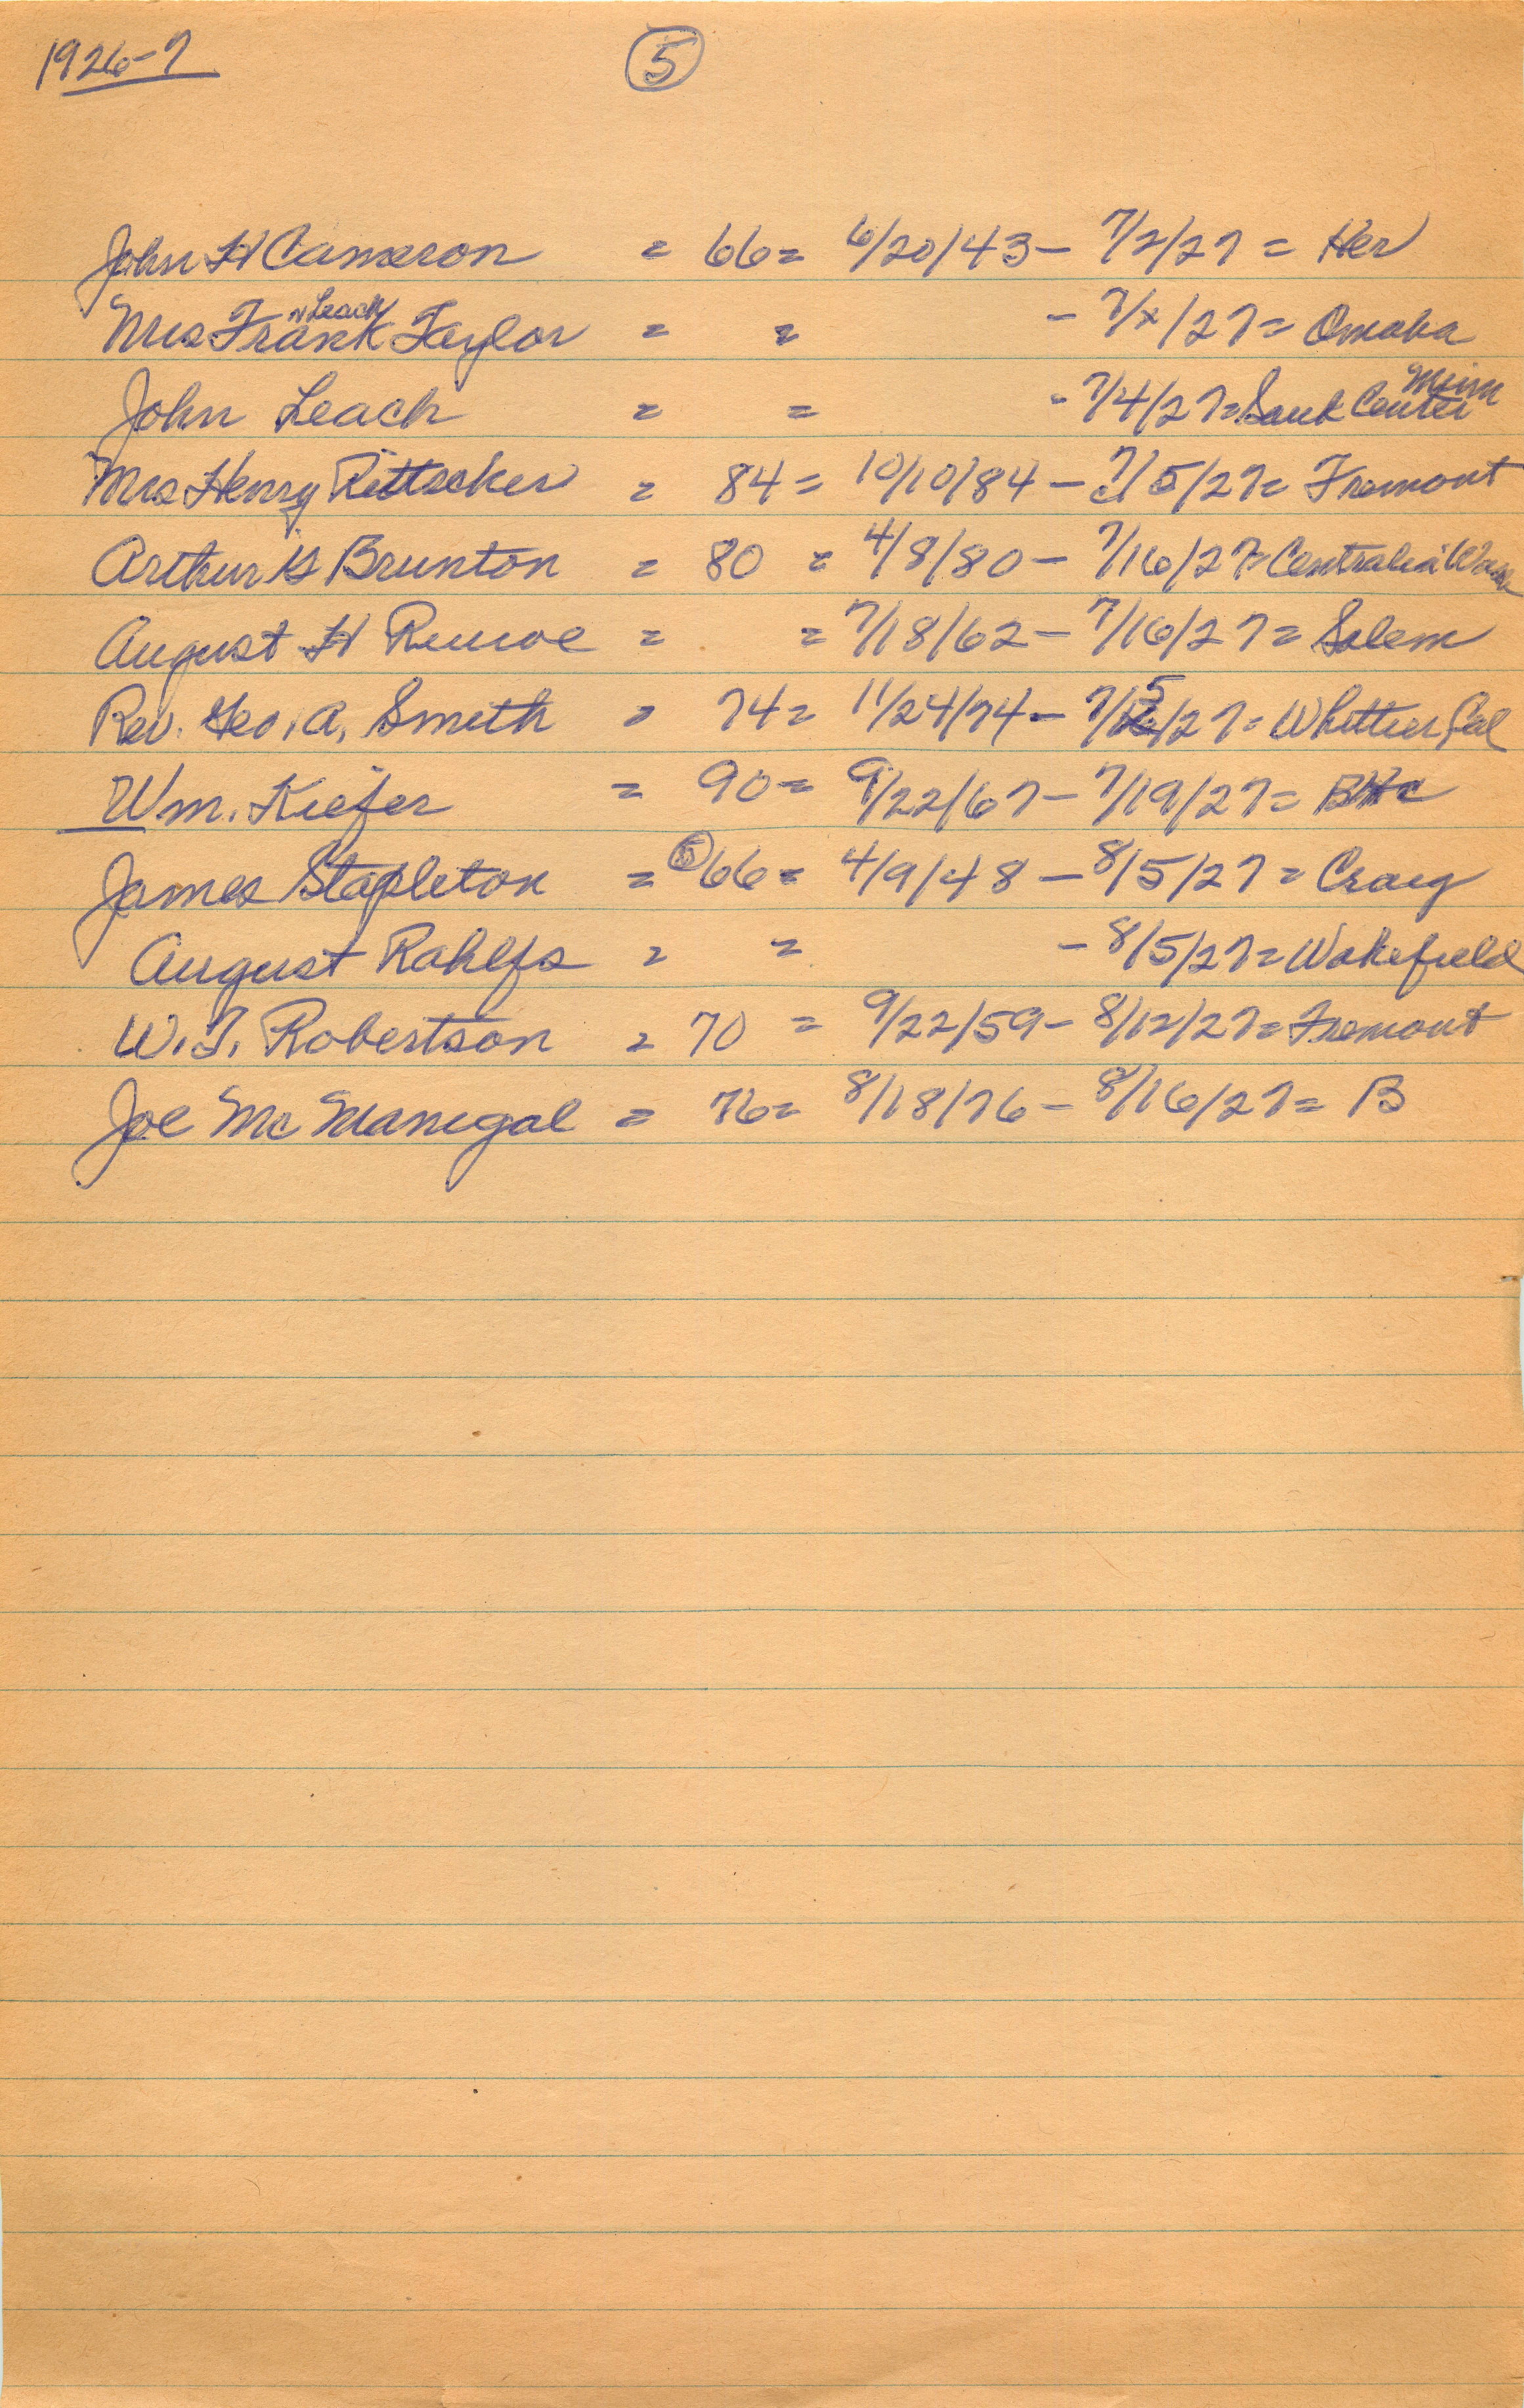 1926-7 5
John H Cameron = 66 = 6/20/43 - 7/2/27 = Her
n Leach
Mrs Frank Taylor = = - 7/x/27 = Omaha
Minn
John Leach = = - 7/4/27 = Sauk Center
Mrs Henry Rettseker = 84 = 10/10/84 - 7/5/27 = Fremont
Arthur G Brunton = 80 = 4/8/80 - 7/16/27 = Centralia Wash
August H = = 7/18/62 - 7/16/27 = Salem
Rev. Geo. A. Smith = 74 = 11/24/74 - 7/15/27 = Whittier Cal
Wm. Kiefer = 90 = 9/22/67 - 7/19/27 = B
James Stapleton = 66 = 4/9/48 - 8/5/27 = Craig
August Rahlfs = = - 8/5/27 = Wakefield
W. T. Robertson = 70 = 9/22/59 - 8/12/27 = Fremont
Joe McManigal = 76 = 8/18/76 - 8/16/27 = B